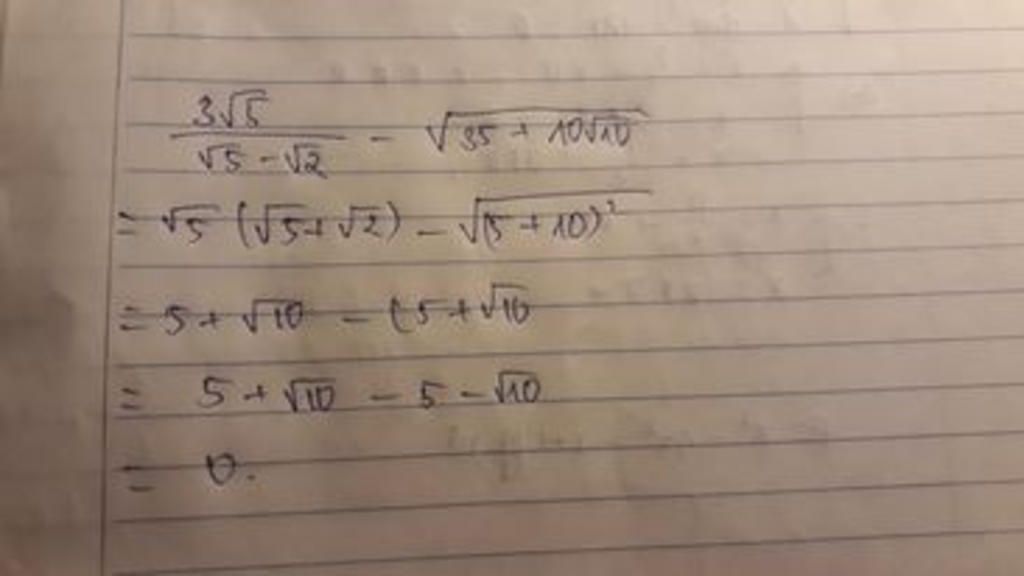 3√5 / (√5 - √2) - √(35 + 10√10)
= √5 (√5 + √2) - √(5 + 10)²
= 5 + √10 - (5 + √10
= 5 + √10 - 5 - √10
= 0.